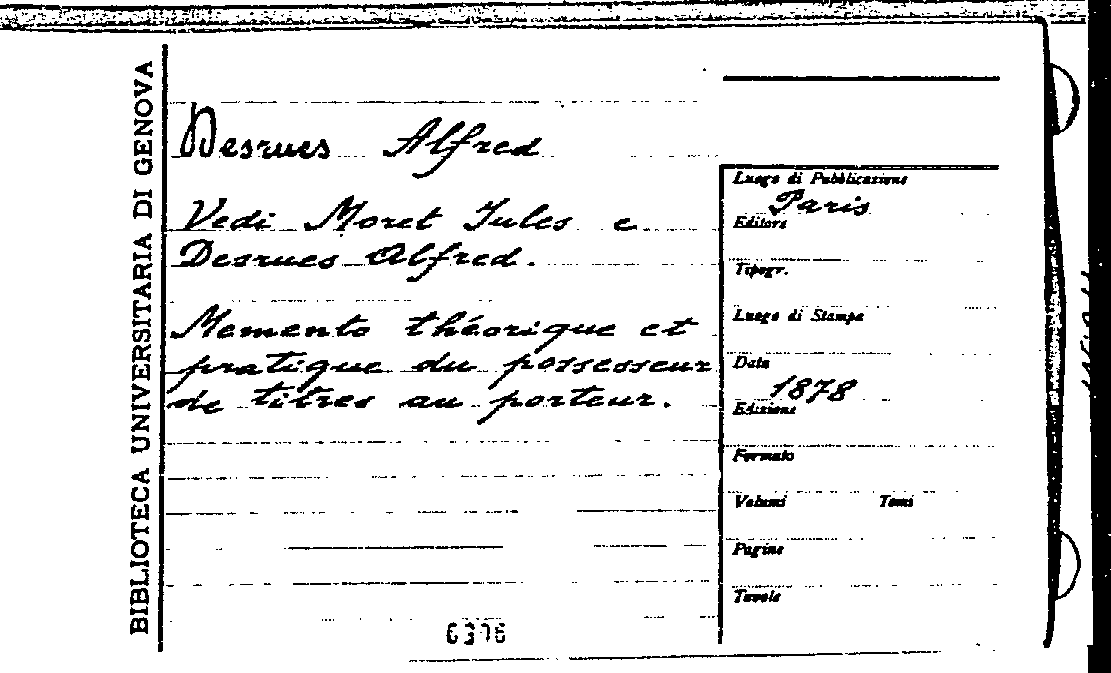 BIBLIOTECA UNIVERSITARIA DI GENOVA
Desrues Alfred
Vedi Moret Jules e
Desrues Alfred.
Memento théorique et
pratique du possesseur
de titres au porteur.
Luogo di Pubblicazione
Paris
Editore
Tipogr.
Luogo di Stampa
Data
1878
Edizione
Formato
Volumi Tomi
Pagine
Tavole
6376